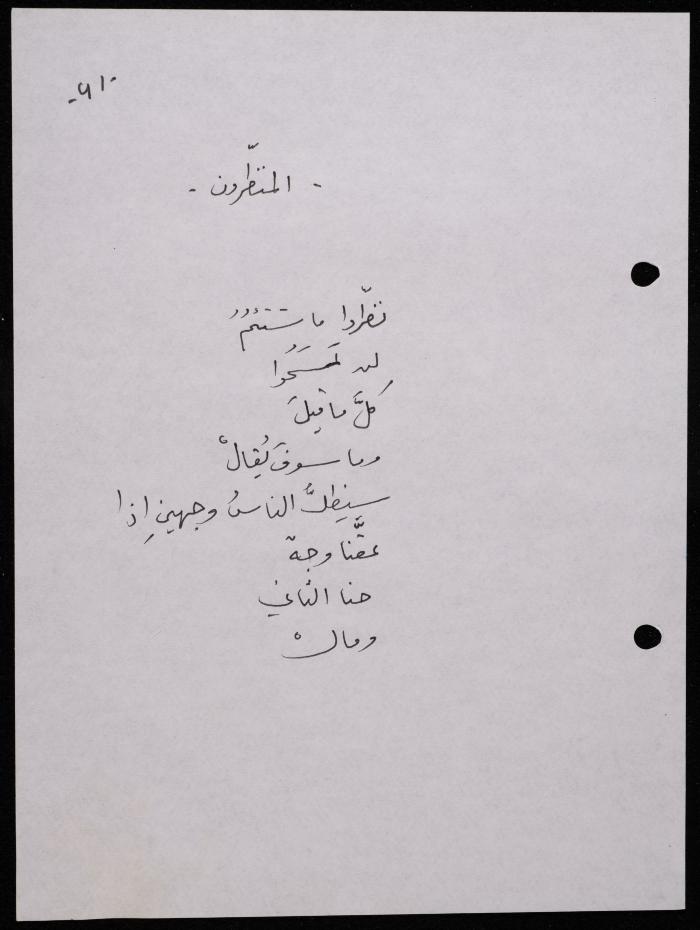 -٦١-
- المنتظرون -
تنظرّوا ما شئتمُ
لن تمسحُوا
كلَّ ما قيلَ
وما سوفَ يُقالْ
سيظلُّ الناسُ وجهينِ إذا
عقَّنا وجهٌ
حنا الثاني
ومالْ